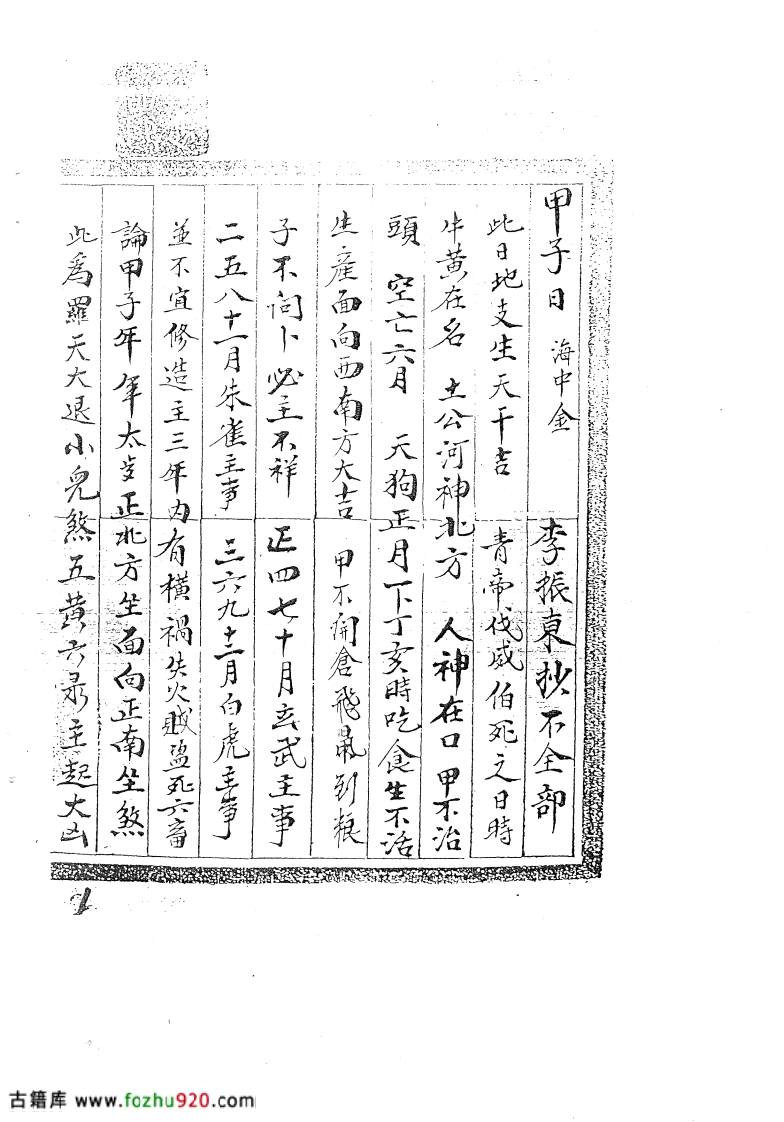 甲子日 海中金 李振東抄不全部
此日地支生天干吉 青帝伐威伯死之日時
牛黄在名 土公河神北方 人神在口 甲不治
頭 空亡六月 天狗正月下丁亥時吃食生不活
生産面向西南方大吉 甲不開倉飛鼠到粮
子不问卜必主不祥 正四七十月玄武主事
二五八十一月朱雀主事 三六九十二月白虎主事
並不宜修造主三年内有横禍失火賊盗死六畜
論甲子年年太岁正北方坐面向正南坐煞
此為羅天大退小児煞五黄六 主起大凶
1
古籍库 www.fozhu920.com